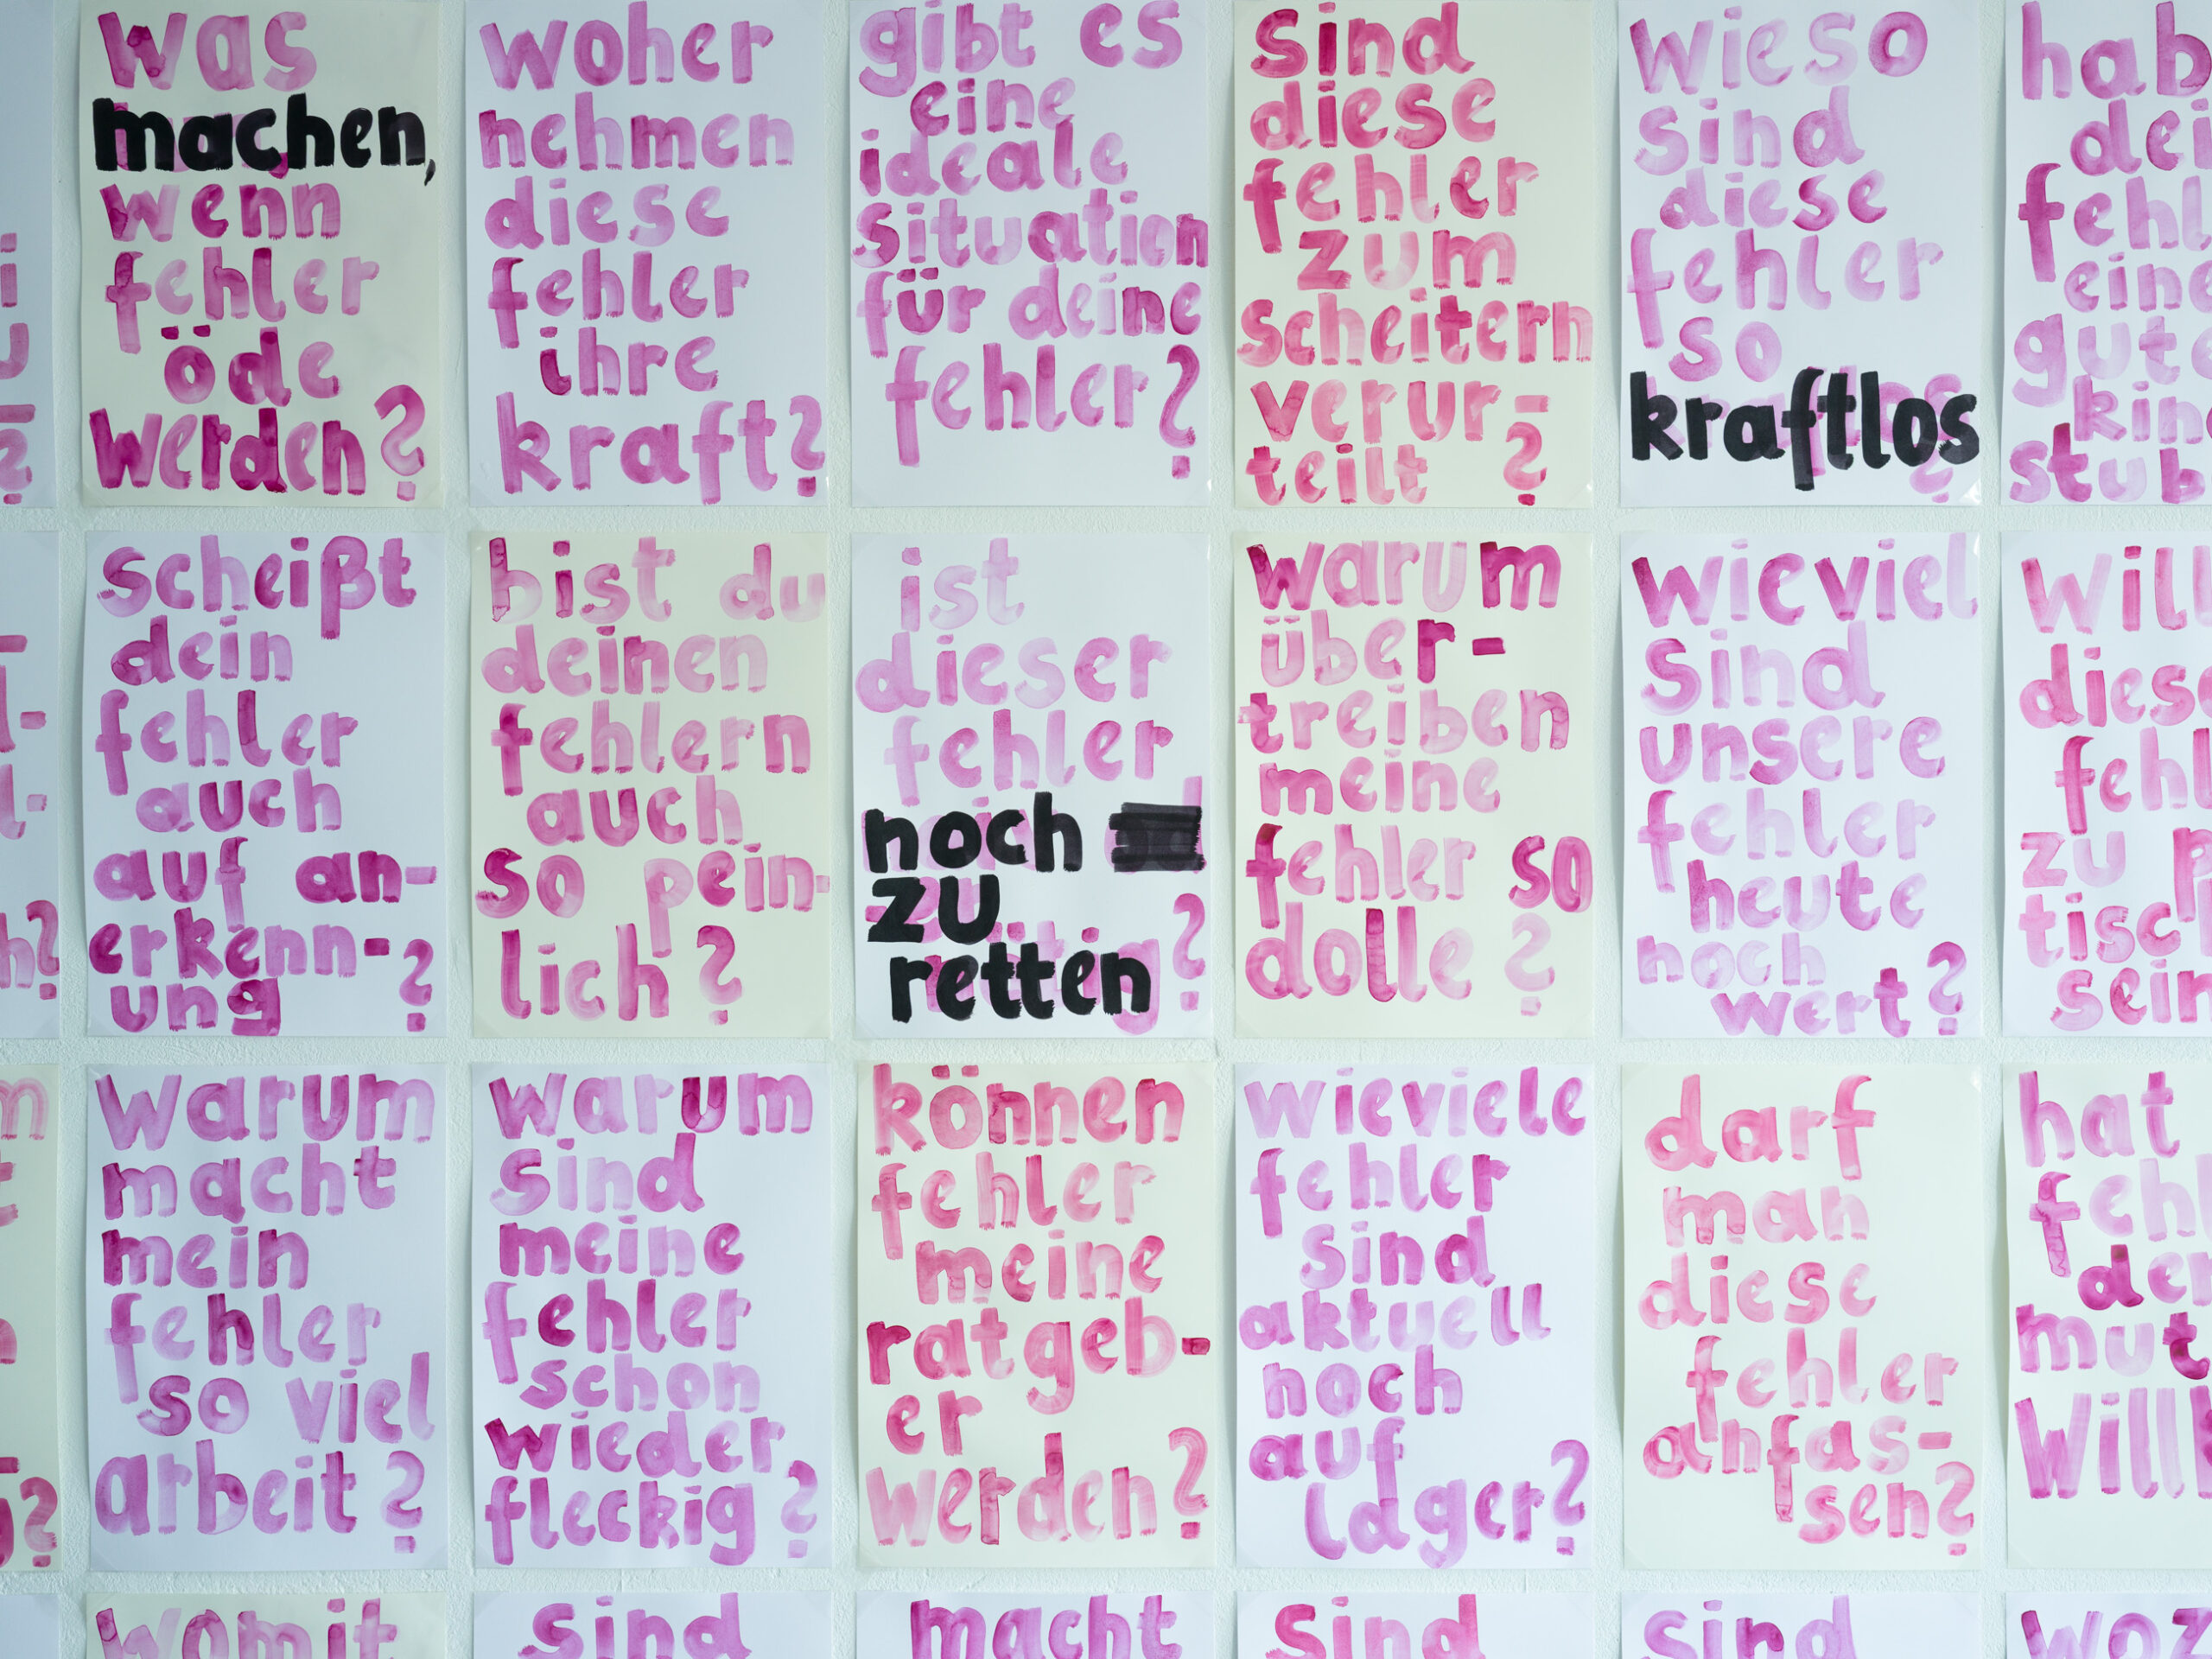 was
machen,
wenn
fehler
öde
werden?
woher
nehmen
diese
fehler
ihre
kraft?
gibt es
eine
ideale
situation
für deine
fehler?
sind
diese
fehler
zum
scheitern
verur-
teilt ?
wieso
sind
diese
fehler
so
kraftlos
?
hab
dei
fehl
eine
gute
kin
stub
scheißt
dein
fehler
auch
auf an-
erkenn-
ung ?
bist du
deinen
fehlern
auch
so pein-
lich?
ist
dieser
fehler
noch
zu
retten ?
warum
über-
treiben
meine
fehler so
dolle ?
wieviel
sind
unsere
fehler
heute
noch
wert?
will
diese
fehl
zu p
tisc
sein
warum
macht
mein
fehler
so viel
arbeit?
warum
sind
meine
fehler
schon
wieder
fleckig ?
können
fehler
meine
ratgeb-
er
werden?
wieviele
fehler
sind
aktuell
noch
auf
lager?
darf
man
diese
fehler
anfas-
sen?
hat
feh
der
mut
will
womit
sind
macht
sind
sind
woz